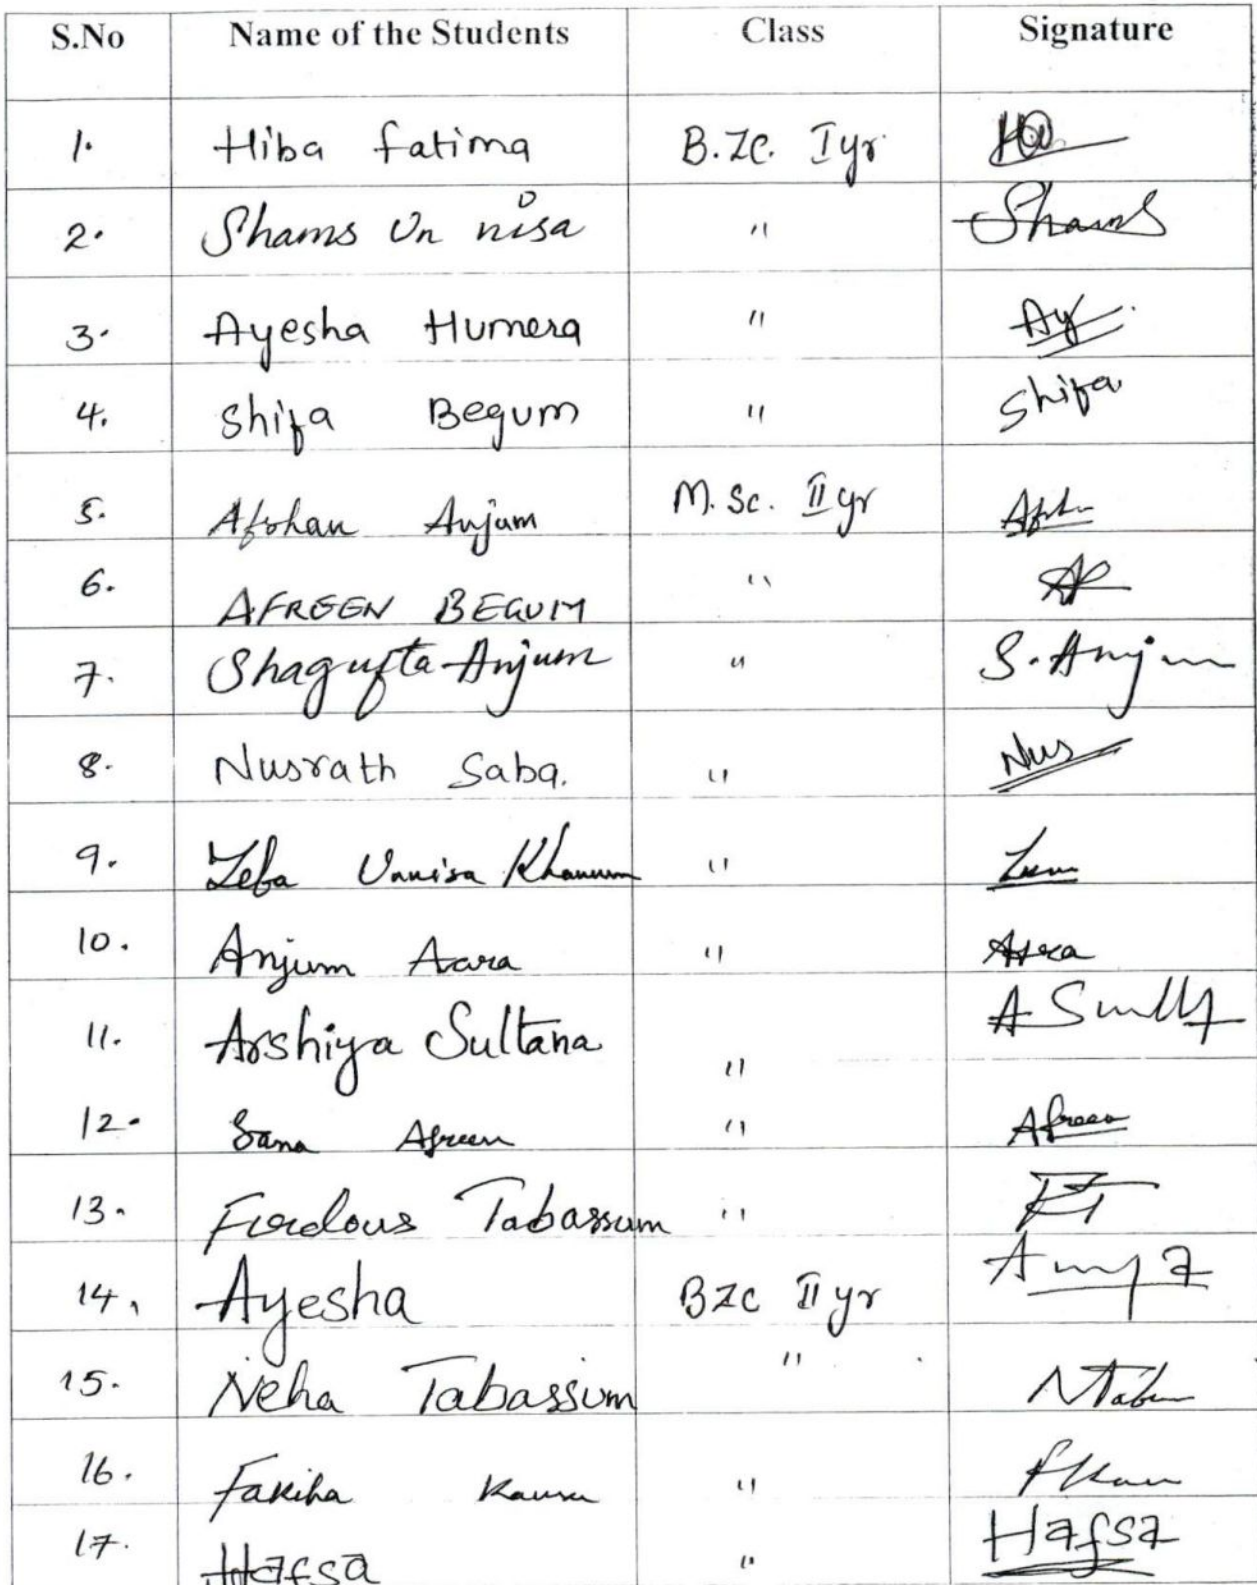 S.No Name of the Students Class Signature
1. Hiba fatima B.ZC. I yr
2. Shams Un nisa " Shams
3. Ayesha Humera " Ay
4. Shifa Begum " Shifa
5. Afshan Anjum M.Sc. II yr
6. AFREEN BEGUM "
7. Shagufta Anjum " S. Anjum
8. Nusrath Saba. " Nus
9. Zeba Unnisa Khanum "
10. Anjum Aara "
11. Arshiya Sultana "
12. Sana Afreen " Afreen
13. Firdous Tabassum " FT
14. Ayesha BZC II yr
15. Neha Tabassum "
16. Fakiha "
17. Hafsa " Hafsa